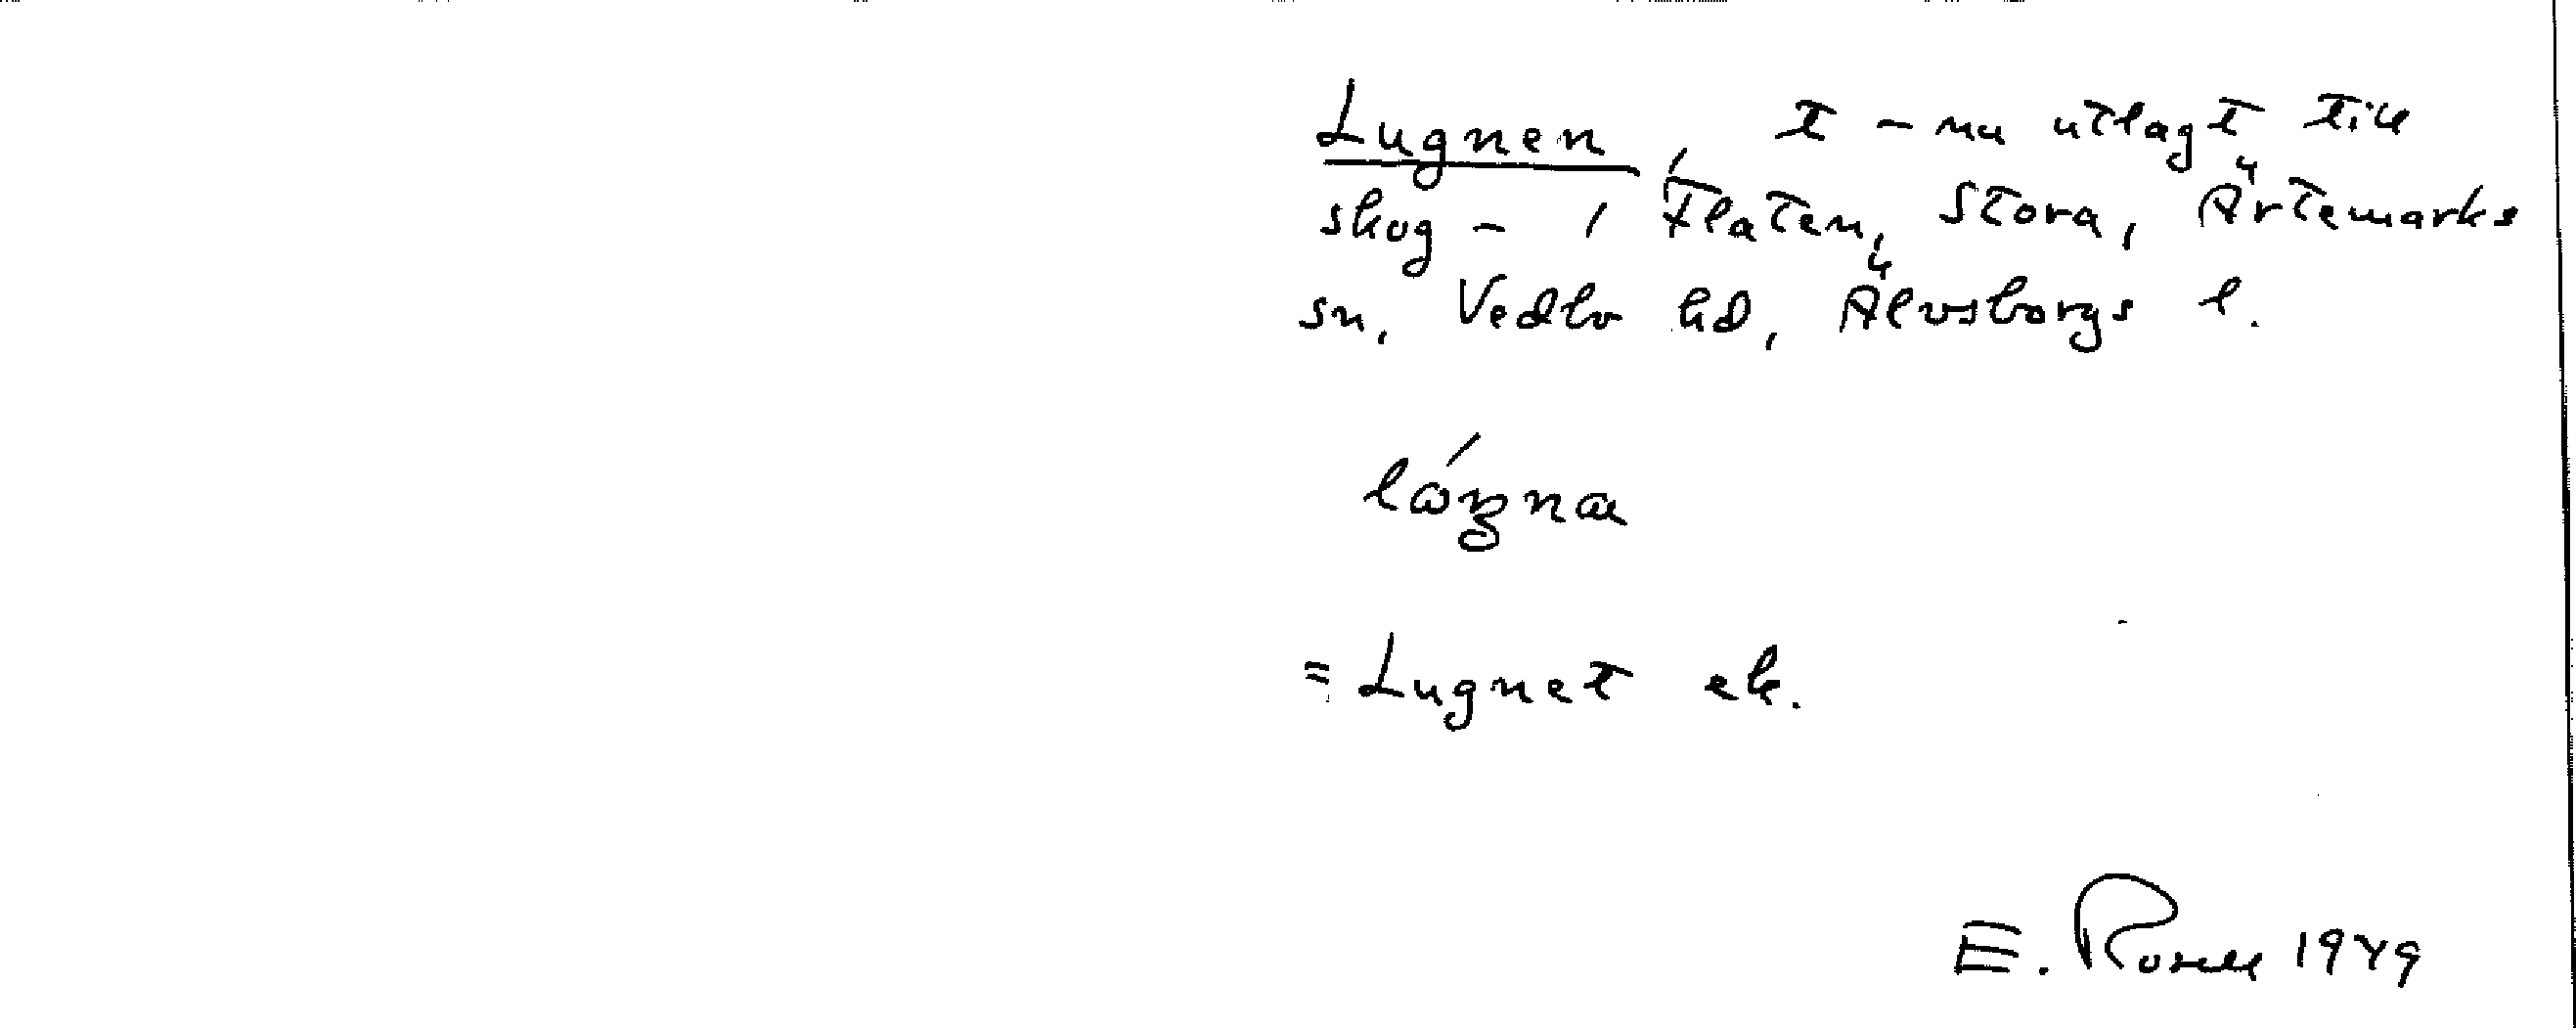 Lugnen, t – nu utlagt till
skog – i Flaten, Stora, Ärtemarks
sn, Vedbo hd, Älvsborgs l.
= Lugnet ek.
E. Rosell 1949